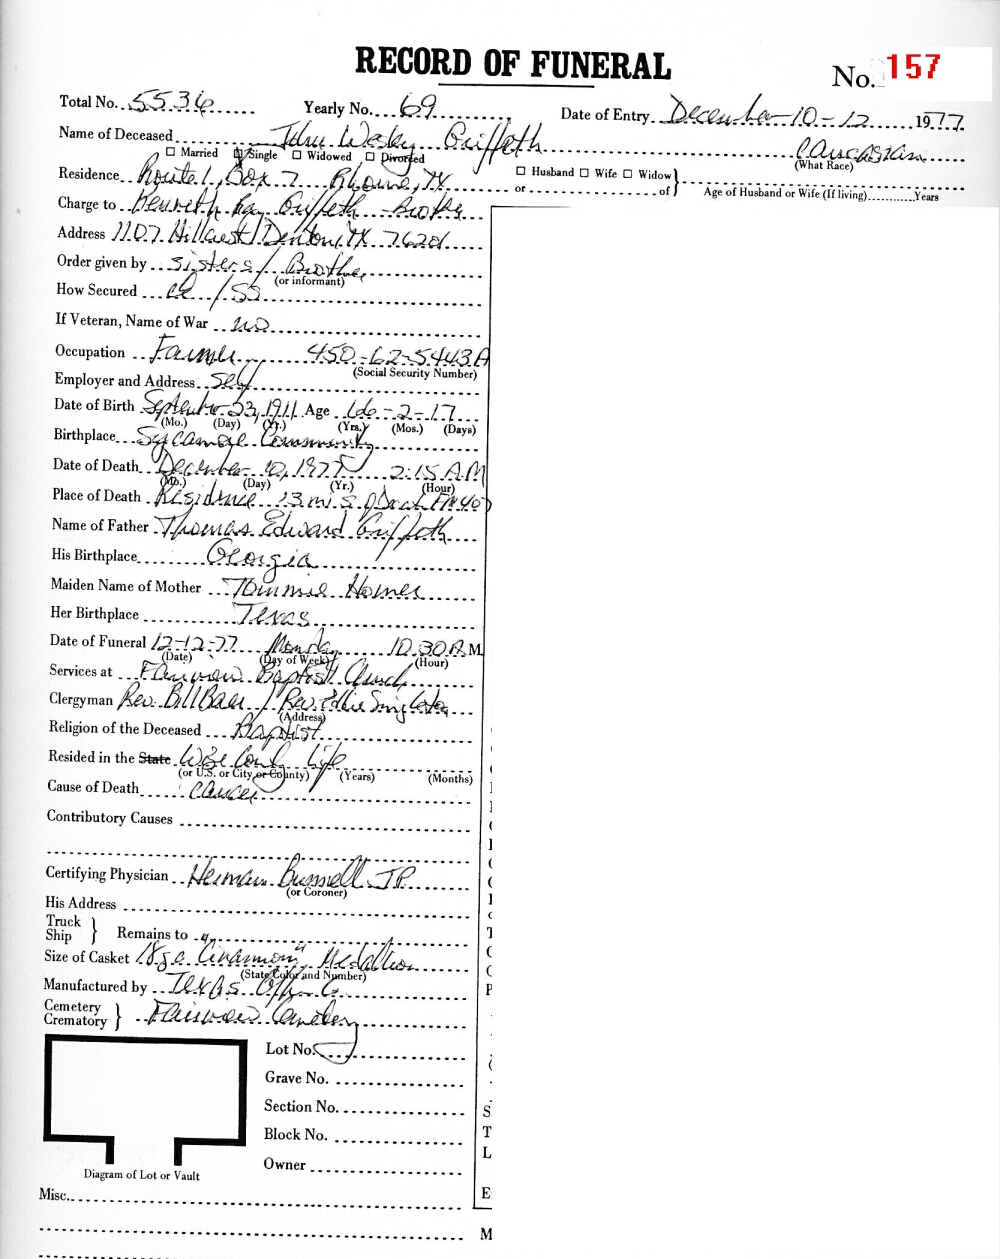 RECORD OF FUNERAL
No. 157
Total No. 5536 Yearly No. 69 Date of Entry December 10-12 1977
Name of Deceased John Wesley Griffeth Caucasian
☐ Married ☑ Single ☐ Widowed ☐ Divorced (What Race)
Residence Route 1, Box 7 Rhome, TX ☐ Husband ☐ Wife ☐ Widow
or of Age of Husband or Wife (If living) Years
Charge to Kenneth Ray Griffeth - Brother
Address 1107 Hillcrest, Denton, TX 76201
Order given by sisters / Brother
(or informant)
How Secured / SS
If Veteran, Name of War no
Occupation Farmer 450-62-5443A
(Social Security Number)
Employer and Address Self
Date of Birth September 23, 1911 Age 66-2-17
(Mo.) (Day) (Yr.) (Yrs.) (Mos.) (Days)
Birthplace Sycamore Community
Date of Death December 10, 1977 2:15 A.M
(Mo.) (Day) (Yr.) (Hour)
Place of Death Residence 13 mi S FM 407
Name of Father Thomas Edward Griffeth
His Birthplace Georgia
Maiden Name of Mother Tommie Homer
Her Birthplace Texas
Date of Funeral 12-12-77 Monday 10:30 A.M.
(Date) (Day of Week) (Hour)
Services at Fairview Baptist Church
Clergyman Rev. Bill Baer / Rev. Eddie Singleton
(Address)
Religion of the Deceased Baptist
Resided in the State Wise County Life
(or U.S. or City or County) (Years) (Months)
Cause of Death cancer
Contributory Causes
Certifying Physician Herman Bussell JP
(or Coroner)
His Address
Truck
Ship } Remains to
Size of Casket 18ga Cinnamon Medallion
(State Color and Number)
Manufactured by Texas Coffin Co.
Cemetery
Crematory } Fairview Cemetery
Lot No.
Grave No.
Section No.
Block No.
Owner
Diagram of Lot or Vault
Misc.
S
T
L
E
M